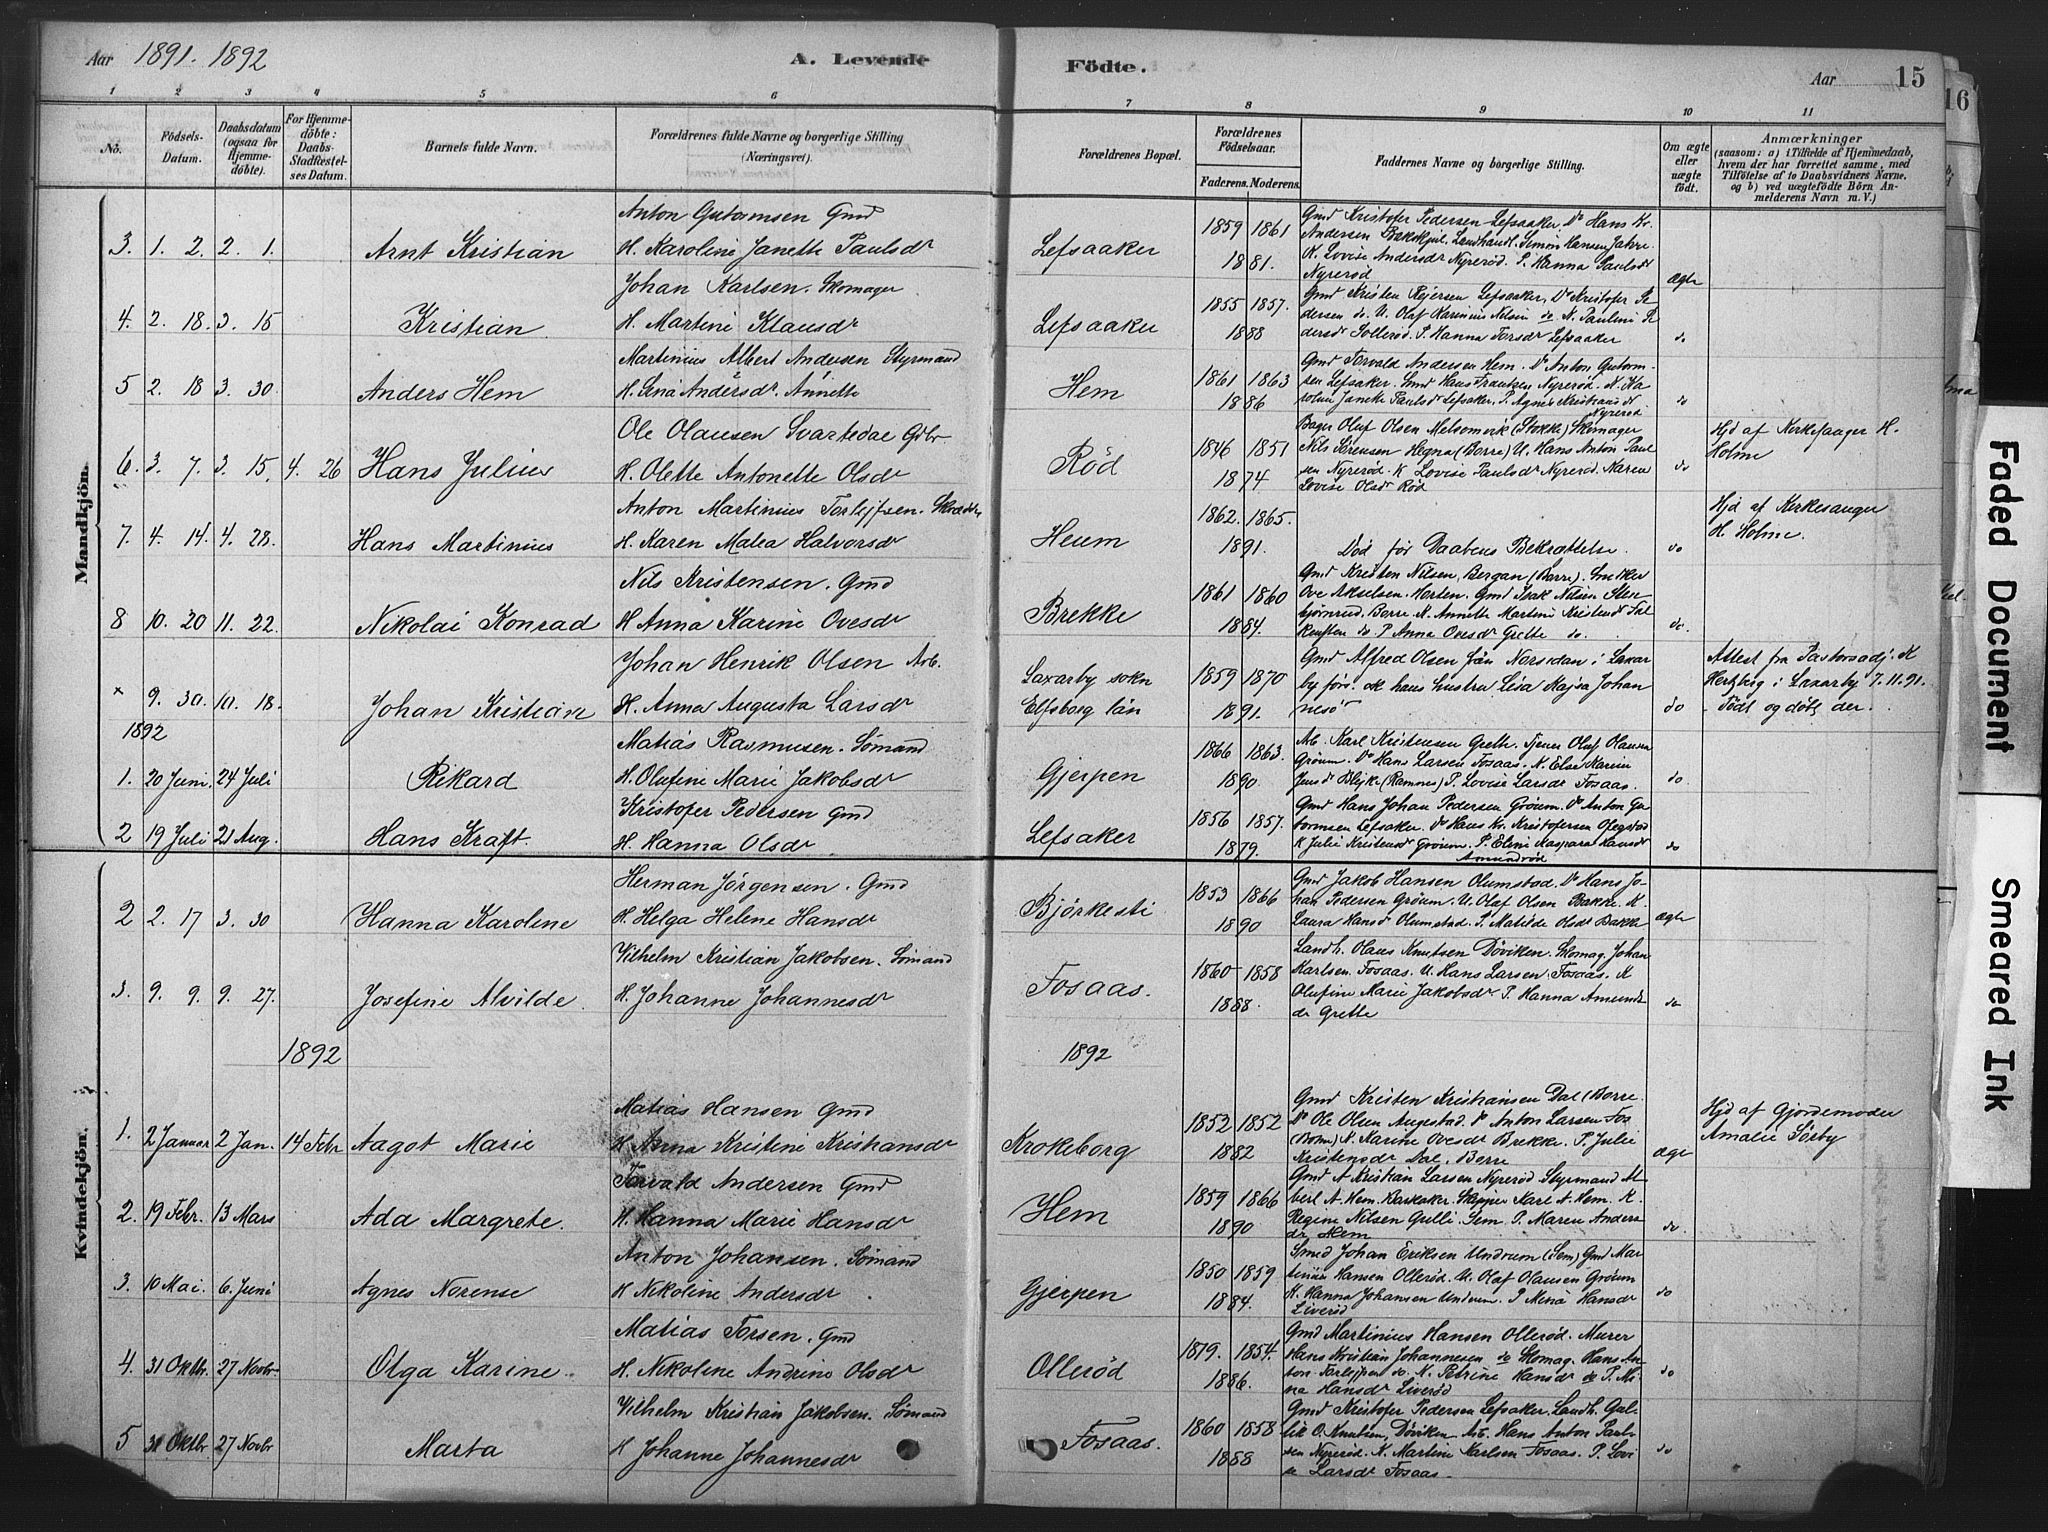 Aar 1891. 1892
A. Levende
Födte.
Aar
15
16
1 2 3 4 5 6 7 8 9 10 11
No.
Födsels-
Datum.
Daabsdatum
(ogsaa for
Hjemme-
döbte).
For Hjemme-
döbte:
Daabs-
Stadfæstel-
ses Datum.
Barnets fulde Navn.
Forældrenes fulde Navne og borgerlige Stilling
(Næringsvei).
Forældrenes Bopæl.
Forældrenes
Födselsaar.
Faderens. Moderens.
Faddernes Navne og borgerlige Stilling.
Om ægte
eller
uægte
født.
Anmærkninger
(saasom: a) i Tilfælde af Hjemmedaab,
hvem der har forrettet samme, med
Tilföielse af to Daabsvidners Navne.
og b) ved uægtefödte Börn An-
melderens Navn m. V.)
Mandkjön.
3. 1. 2. 2. 1. Arnt Kristian
Anton Gutormsen Gmd
H. Karoline Janette Paulsdr
Lefsaaker
1859 1861
1881.
Gmd Kristofer Pedersen Lefsaaker Do Hans Kr.
Andersen Bakskjul. Landhandl. Simon Hansen Jahre
K. Lovise Andersdr Nyrerød. P. Hanna Paulsdr
Nyrerød
ægte
4. 2. 18. 3. 15 Kristian
Johan Karlsen. Skomager
H. Martine Klausdr
Lefsaaker
1855 1857.
1888
Gmd Kristen Rejersen Lefsaaker, Do Kristofer Pe-
dersen do. U. Olaf Karinius Nilsen do. K. Pauline Pe
dersdr Sollerød. P. Hanna Torsdr Lefsaaker
do
5 2. 18 3. 30. Anders Hem
Martinius Albert Andersen Styrmand
H. Lina Andersdr Annette
Hem
1861 1863
1886
Gmd Torvald Andersen Hem. Do Anton Gutorm-
sen Lefsaker. Smd Hans Frantzen Nyrerød. K. Ka
roline Janette Paulsdr Lefsaker. P. Agnes Kristiansdr
Nyrerød
do
6. 3. 7. 3. 15. 4. 26 Hans Julius
Ole Olausen Svartedae Gdbr
H. Olette Antonette Olsdr
Rød
1846 1851
1874
Bager Oluf Olsen Melsomvik (Stokke) Skomager
Nils Sørensen Hegna (Borre) U. Hans Anton Paul
sen Nyrerød. K Lovise Paulsdr Nyrerød. Karen
Lovise Olsdr Rød
do
Hjd af Kirkesanger H.
Holme
7. 4. 14. 4. 28. Hans Martinius
Anton Martinius Torlejfsen. Skrædder
H. Karen Malea Halvorsdr
Heum
1862. 1865.
1891.
Død før Daabens Bekræftelse.
do
Hjd af Kirkesanger
H. Holme.
8 10. 20 11. 22. Nikolai Konrad
Nils Kristensen. Gmd
H Anna Karine Ovesdr
Brekke
1861 1860
1884.
Gmd Kristen Nilsen, Bergan (Borre). Snekker
Ove Akselsen. Horten. Gmd Isak Nilsen Sten
bjørnrud. Borre. K. Annette Martine Kristensdr Fal
kensten do P Anna Ovesdr Grette do.
do.
x 9. 30. 10. 18. Johan Kristian
Johan Henrik Olsen Arb.
H. Anna Augusta Larsdr
Laxarby sokn
Elfsborg län
1859 1870
1891.
Gmd Alfred Olsen från Norsidan i Laxar
by förs. ok hans hustru Lisa Majsa Johan
nesdr
do
Attest fra Pastorsadj. K
Hertzberg i Laxarby 7.11.91.
- Født og døbt der.
1892
1. 20 Juni. 24 Juli Rikard
Matias Rasmusen. Sømand
H. Olufine Marie Jakobsdr
Gjerpen
1866 1863.
1890.
Arb. Karl Kristensen Grette. Tjener Oluf Olausen
Grøum. Do Hans Larsen Fosaas. K. Else Marin
Jensdr Blijke (Ramnes) P. Lovise Larsdr Fosaas.
do
2 19 Juli 21 Aug. Hans Kraft.
Kristofer Pedersen Gmd
H. Hanna Olsdr
Lefsaker
1856 1857.
1879.
Gmd Hans Johan Pedersen Grøum. Do Anton Gu
tormsen Lefsaker. Do Hans Kr. Kristofersen Olegstad
K Julie Kristensdr Grøum. P. Eline Kaspara Hansdr
Amundrød
do
Kvindekjön.
2 2. 17 3. 30 Hanna Karoline
Herman Jørgensen. Gmd
H. Helga Helene Hansdr
Bjørkesti
1853 1866
1890
Gmd Jakob Hansen Olumstad. Do Hans Jo-
han Pedersen Grøum. U. Olaf Olsen Bakke. K.
Laura Hansdr Olumstad. P. Matilde Olsdr Bakke
ægte
3. 9. 9. 9. 27. Josefine Alvilde.
Vilhelm Kristian Jakobsen. Sømand
H. Johanne Johannesdr
Fosaas.
1860 1858
1888.
Landh. Olaus Knutsen Døviken. Skomag. Johan
Karlsen. Fosaas. U. Hans Larsen Fosaas. K
Olufine Marie Jakobsdr. P. Hanna Amunds
dr Grette
do
1892
1892
1. 2 Januar 2 Jan. 14 Febr Aagot Marie
Matias Hansen Gmd
H. Anna Kristine Kristiansdr
Krokeborg
1852 1852
1882
Gmd Kristen Kristiansen Dal (Borre.
Do Ole Olsen Augestad. Do Anton Larsen Fos
(Botne) K. Marine Ovesdr Brekke. P. Julie
Kristensdr Dal, Borre
ægte
Hjd af Gjordemoder
Amalie Sørby
2. 19 Febr. 13 Mars Ada Margrete.
Torvald Andersen Gmd
H. Hanna Marie Hansdr
Hem
1859 1866
1890
Gmd A Kristian Larsen Nyrerød. Styrmand Al
bert A. Hem. Barkaker. Skipper Karl A. Hem. K.
Regine Nilsen Gulli. Sem. P. Maren Anders
dr Hem
do
3. 10 Mai. 6. Juni Agnes Norense
Anton Johansen. Sømand
H Nikoline Andersdr.
Gjerpen
1850 1859
1884.
Smed Johan Eriksen Undrum (Sem) Gmd Mar
tinius Hansen Ollerød. U. Olaf Olausen Grøum
K. Hanna Johansen Undrum. P Mina Hansdr
Liverød
do
4. 31 Oktbr. 27 Novbr. Olga Karine.
Matias Torsen. Gmd
H. Nikoline Andrine Olsdr
Ollerød
1819. 1854.
1886.
Gmd Martinius Hansen Ollerød. Murer
Hans Kristian Johannesen do Skomag. Hans An
ton Torlejfsen do. K. Petrine Hansdr do P. Mi
na Hansdr Liverød
do
5 31 Oktbr 27 Novbr Marta
Vilhelm Kristian Jakobsen. Sømand
H Johanne Johannesdr
Fosaas.
1860 1858
1888
Gmd Kristofer Pedersen Lefsaker. Landh. Gul-
lik O. Knutsen, Døviken Arb. Hans Anton Paul-
sen Nyrerød. K. Martine Karlsen Fosaas. P. Lovi
se Larsdr Fosaas.
do
Faded Document
Smeared Ink